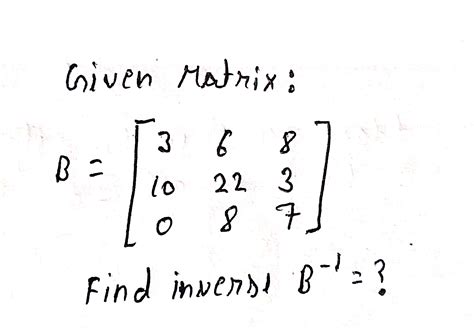 Given Matrix:
B = [3 6 8
10 22 3
0 8 7]
Find inverse B⁻¹ = ?